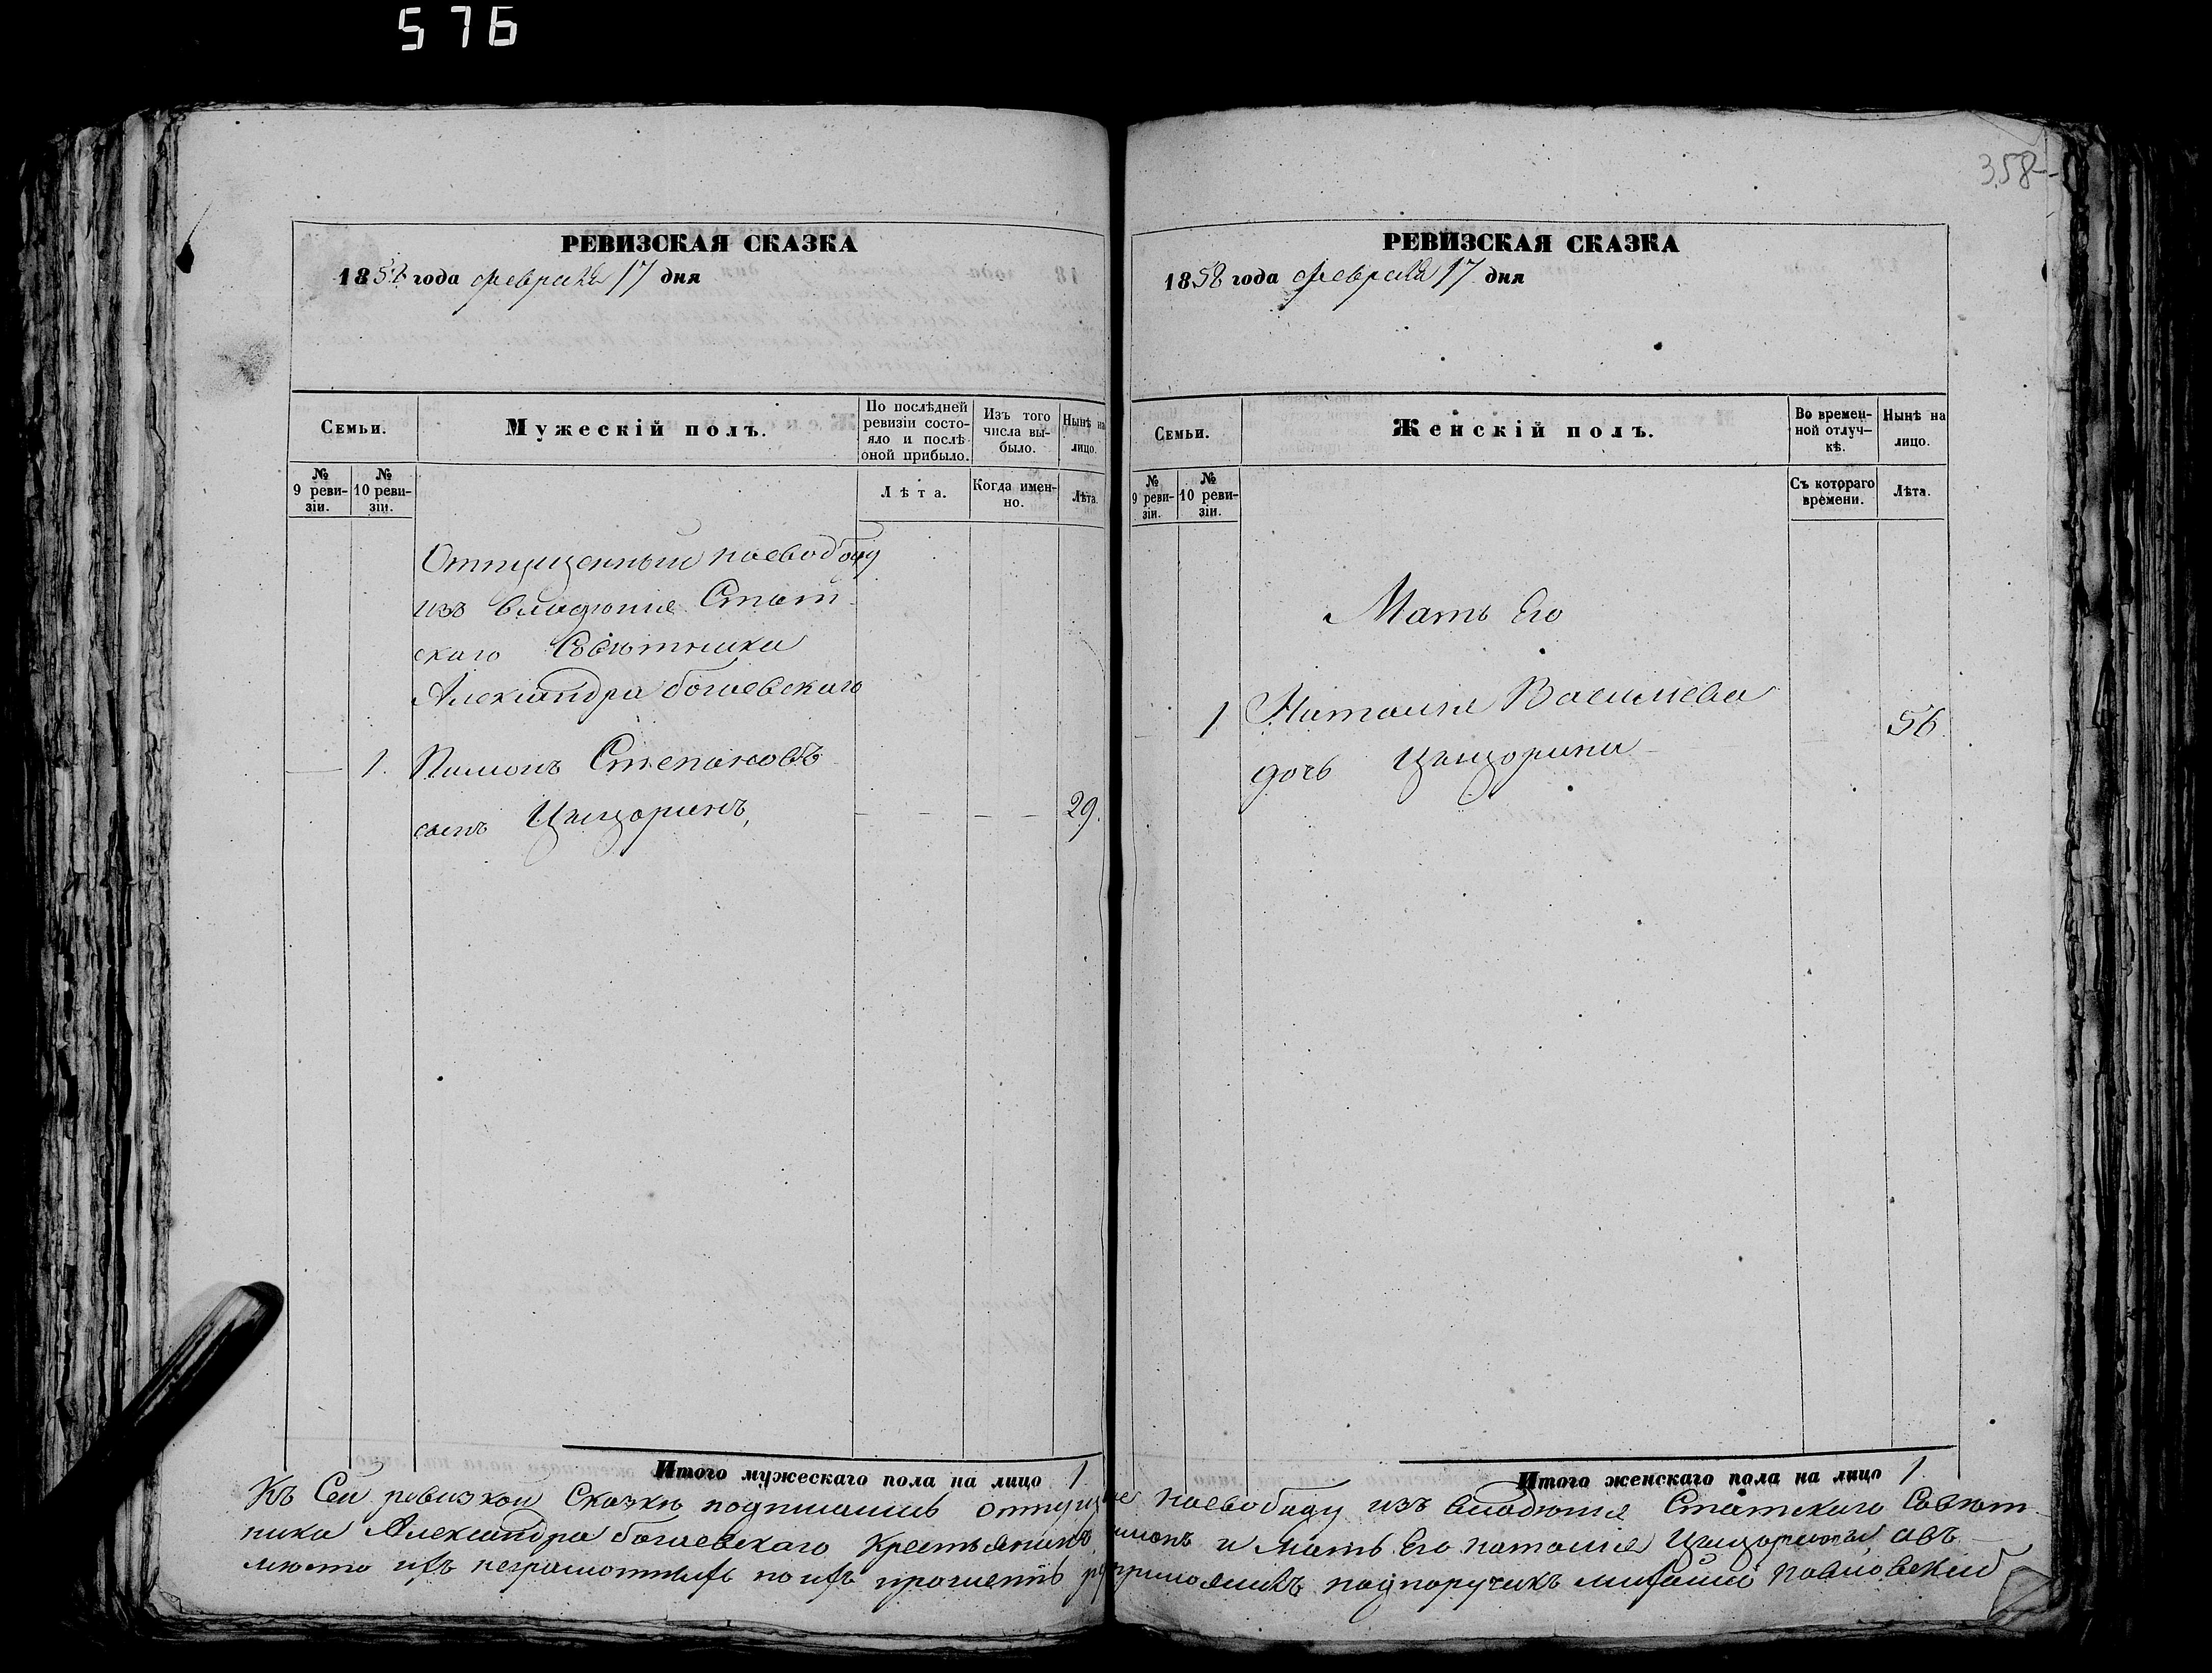 576
358
РЕВИЗСКАЯ СКАЗКА
1858 года февраля 17 дня
Семьи.
Мужескій полъ.
По послѣдней ревизіи состо-
яло и послѣ оной прибыло.
Изъ того числа вы-
было.
Нынѣ на лицо.
№ 9 реви-
зіи.
№ 10 реви-
зіи.
Лѣта.
Когда имен-
но.
Лѣта.
Отпущенный насвободу
изъ владѣнія Стат
скаго Совѣтника
Александра богаевскаго
1. Пимонъ Степановъ
сынъ 29.
Итого мужескаго пола на лицо 1
РЕВИЗСКАЯ СКАЗКА
1858 года февраля 17 дня
Семьи.
Женскій полъ.
Во времен-
ной отлуч-
кѣ.
Нынѣ на лицо.
№ 9 реви-
зіи.
№ 10 реви-
зіи.
Съ котораго времени.
Лѣта.
Мать Его
1 Наталія Василиева 56
дочь
Итого женскаго пола на лицо 1.
Къ Сей ревизкой Сказкѣ подписались насвободу изъ владѣнія Статскаго Совѣт
ника Александра богаевскаго и мать Его наталія
мѣсто ихъ неграмотныхъ поихъ подпоручикъ михайло павловскій